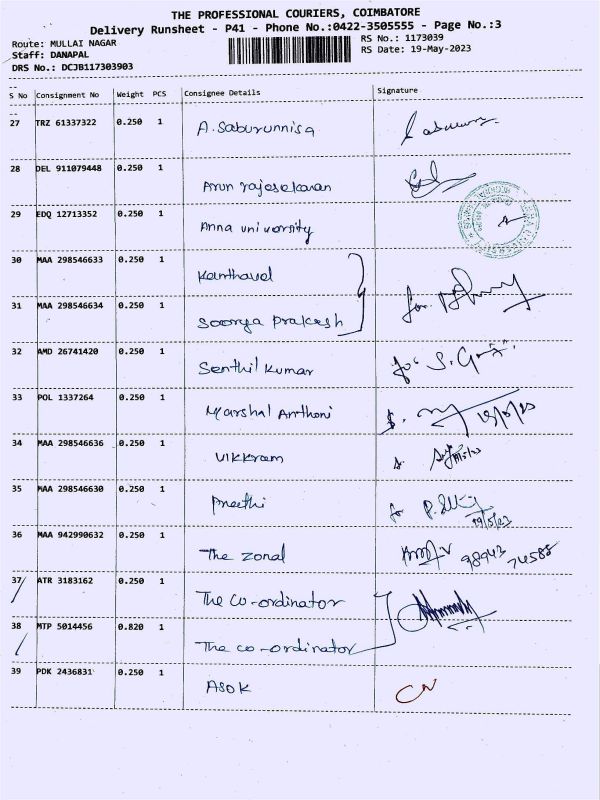 THE PROFESSIONAL COURIERS, COIMBATORE
Delivery Runsheet - P41 - Phone No.:0422-3505555 - Page No.:3
Route: MULLAI NAGAR RS No.: 1173039
Staff: DANAPAL RS Date: 19-May-2023
DRS No.: DCJB117303903
S No Consignment No Weight PCS Consignee Details Signature
27 TRZ 61337322 0.250 1 A. Saburunnisa
28 DEL 911079448 0.250 1 Arun rajasekaran
29 EDQ 12713352 0.250 1 Anna university
30 MAA 298546633 0.250 1 Kanthavel
31 MAA 298546634 0.250 1 Soorya Prakash for
32 AMD 26741420 0.250 1 Senthil Kumar for S.
33 POL 1337264 0.250 1 Marshal Anthoni
34 MAA 298546636 0.250 1 Vikkram
35 MAA 298546630 0.250 1 Preethi for P. 19/5/23
36 MAA 942990632 0.250 1 The Zonal 98943 74588
37 ATR 3183162 0.250 1 The Co-ordinator
38 MTP 5014456 0.820 1 The co-ordinator
39 PDK 2436831 0.250 1 ASOK CN